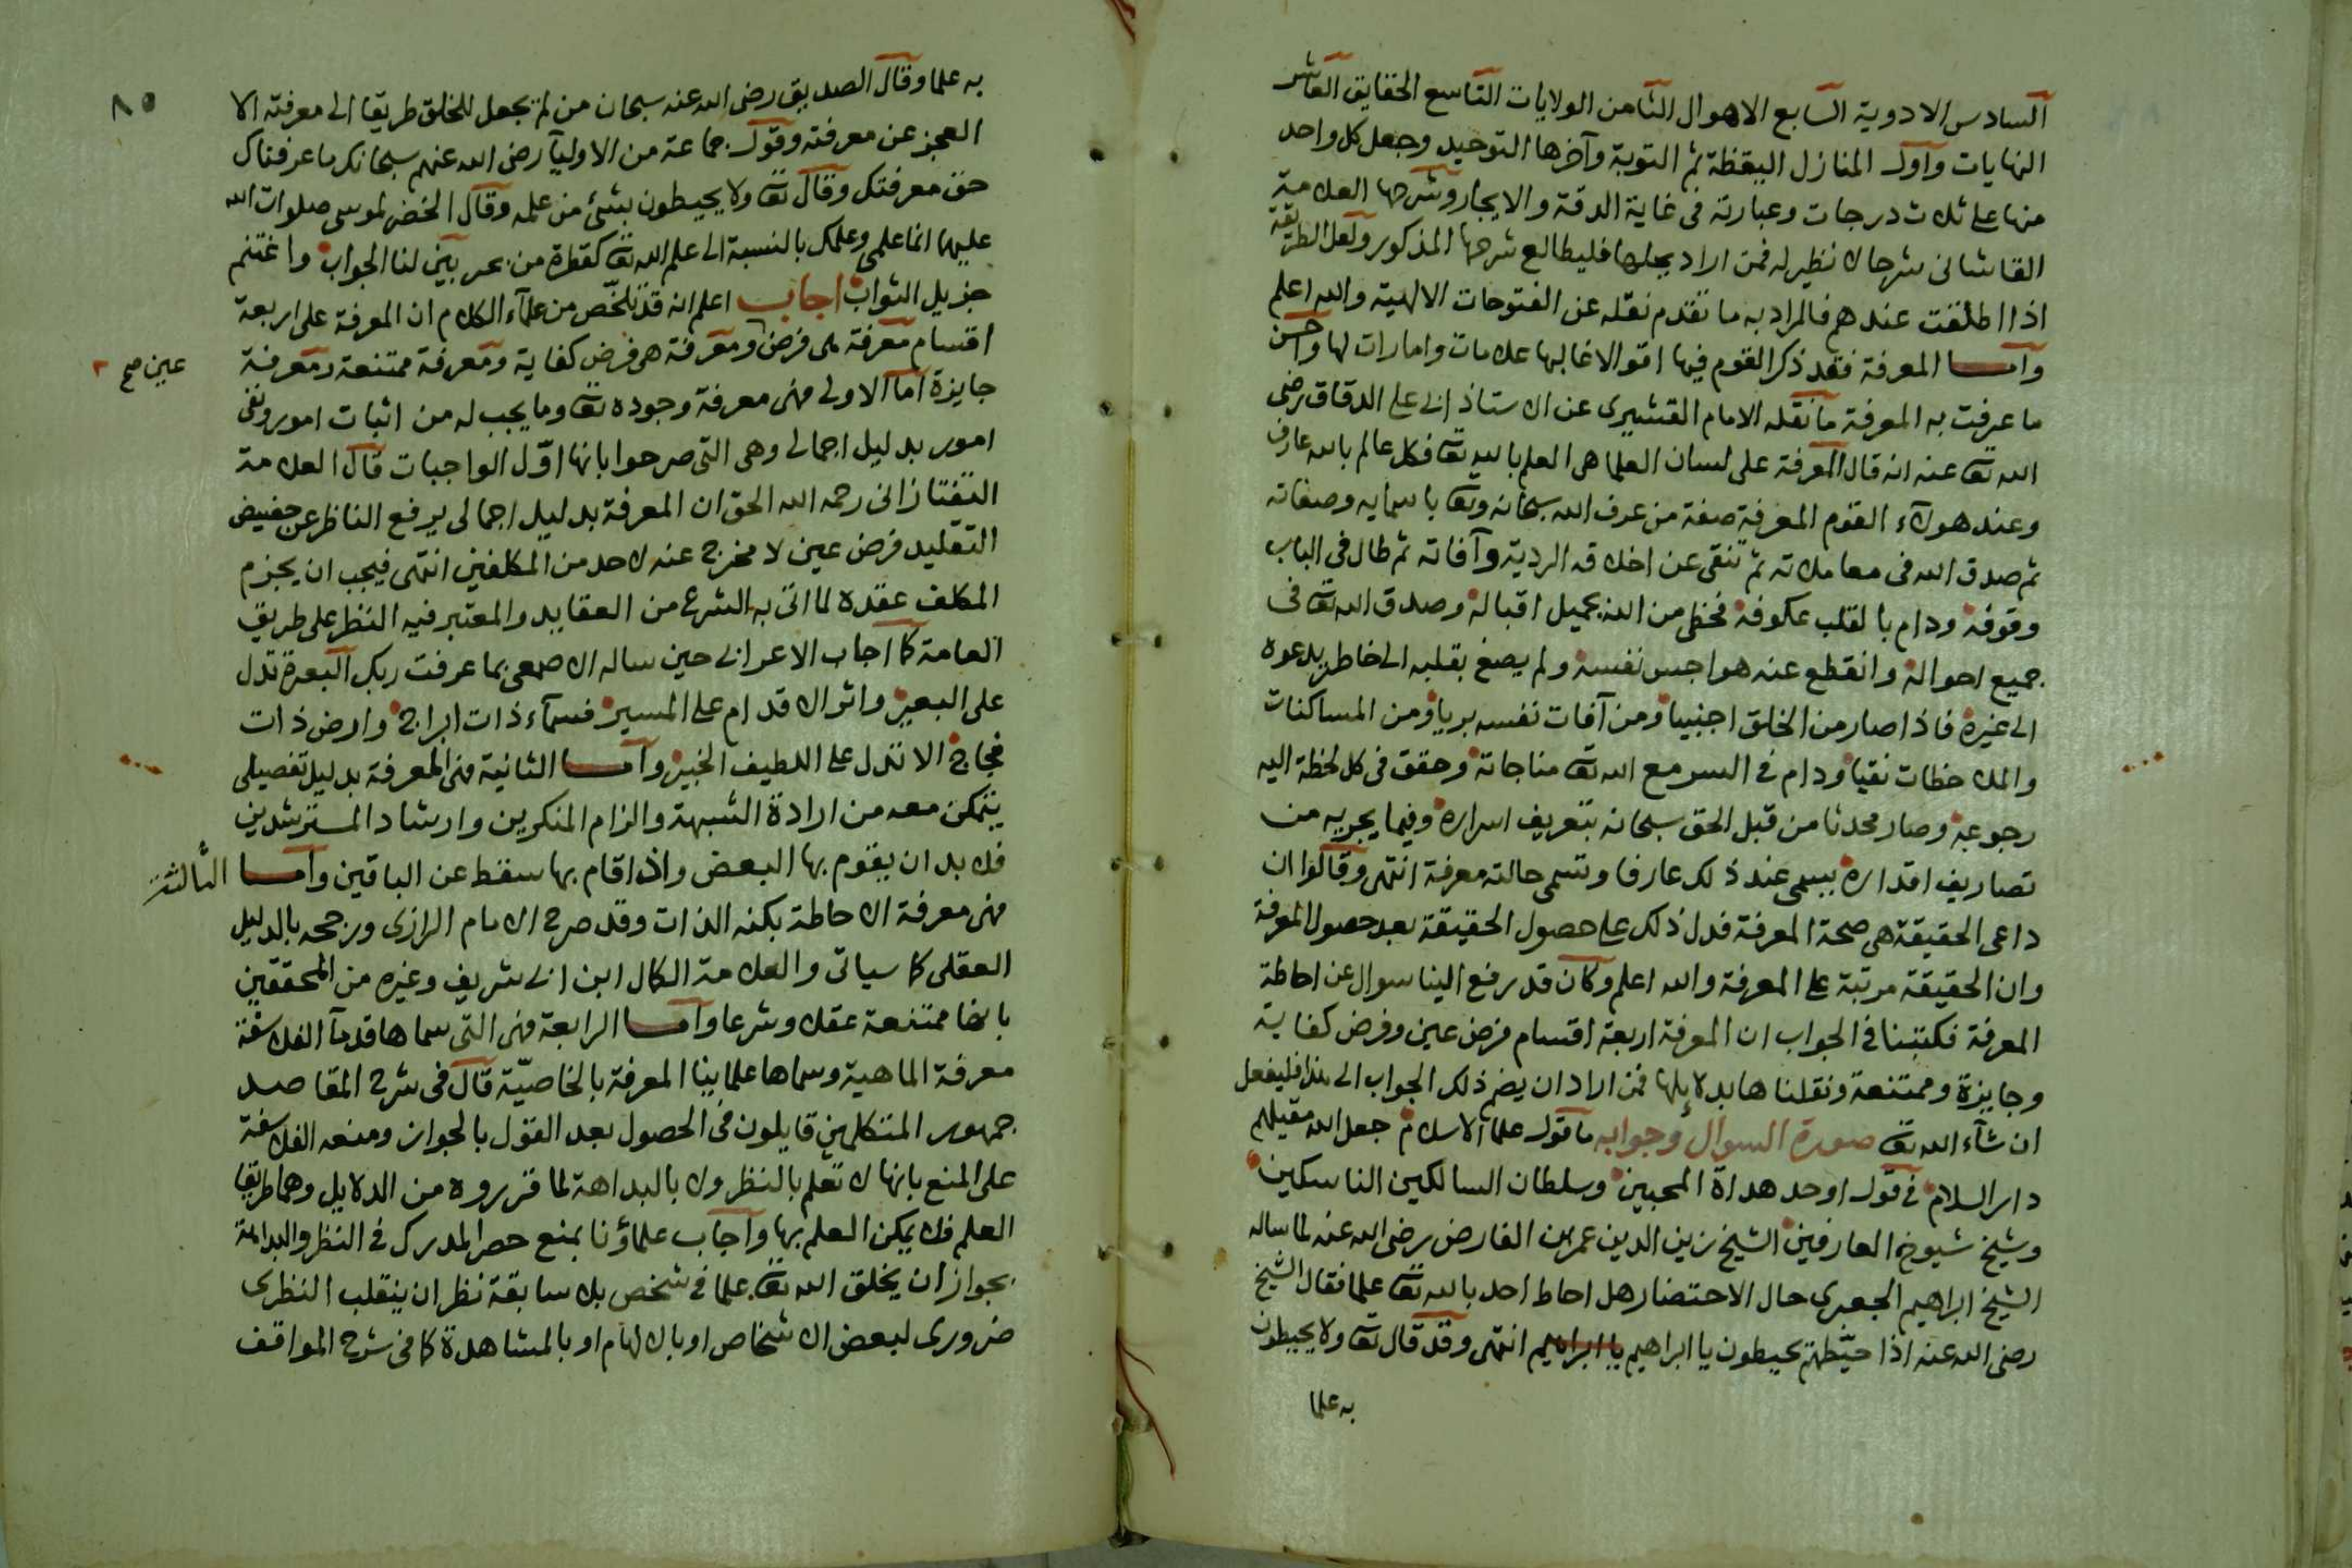 السادس الادوية السابع الاهوال الثامن الولايات التاسع الحقايق العاشر
النهايات واول المنازل اليقظة ثم التوبة وآخرها التوحيد وجعل كل واحد
منها على ثلاث درجات وعبارته فى غاية الدقة والايجاز وشرحها العلامة
القاشانى شرحا لا نظير له فمن اراد حلها فليطالع شرحها المذكور ولعل الطريقة
اذا اطلقت عندهم فالمراد به ما تقدم نقله عن الفتوحات الالهية والله اعلم
واما المعرفة فقد ذكر القوم فيها اقوالا غالبها علامات وامارات لها واحسن
ما عرفت به المعرفة ما نقله الامام القشيرى عن الاستاذ ابى على الدقاق رضى
الله تعا عنه انه قال المعرفة على لسان العلما هى العلم بالله تعا فكل عالم بالله عارف
وعند هولآء القوم المعرفة صفة من عرف الله سبحانه وتعا باسمايه وصفاته
ثم صدق الله فى معاملاته ثم تنقى عن اخلاقه الردية وآفاته ثم طال فى الباب
وقوفه ودام بالقلب عكوفه فحظى من الله بجميل اقباله وصدق الله تعا فى
جميع احواله وانقطع عنه هواجس نفسه ولم يصغ بقلبه الى خاطر يدعوه
الى غيره فاذا صار من الخلق اجنبيا ومن آفات نفسه بريا ومن المساكنات
والملاحظات نقيا ودام فى السر مع الله تعا مناجاته وحقق فى كل لحظة اليه
رجوعه وصار محدثا من قبل الحق سبحانه بتعريف اسراره وفيما يجريه من
تصاريف اقداره يسمى عند ذلك عارفا وتسمى حالته معرفة انتهى وقالوا ان
داعى الحقيقة هى صحة المعرفة فدل ذلك على حصول الحقيقة بعد حصول المعرفة
وان الحقيقة مرتبة على المعرفة والله اعلم وكان قد رفع الينا سوال عن احاطة
المعرفة فكتبنا فى الجواب ان المعرفة اربعة اقسام فرض عين وفرض كفاية
وجايزة وممتنعة ونقلناها بدلايلها فمن اراد ان يضم ذلك الجواب الى هذا فليفعل
ان شآء الله تعا صورة السوال وجوابه ما قول علمآ الاسلام جعل الله مقيلهم
دار السلام فى قول اوحد هداة المحبين وسلطان السالكين الناسكين
وشيخ شيوخ العارفين الشيخ زين الدين عمر بن الفارض رضى الله عنه لما ساله
الشيخ ابراهيم الجعبرى حال الاحتضار هل احاط احد بالله تعا علما فقال الشيخ
رضى الله عنه اذا حيّطهم يحيطون يا ابراهيم يا ابراهيم انتهى وقد قال تعا ولا يحيطون
به علما
٨٥
به علما وقال الصديق رضى الله عنه سبحان من لم يجعل للخلق طريقا الى معرفته الا
العجز عن معرفته وقول جماعة من الاوليآ رضى الله عنهم سبحانك ما عرفناك
حق معرفتك وقال تعا ولا يحيطون بشئ من علمه وقال الخضر لموسى صلوات الله
عليهما انما علمى وعلمك بالنسبة الى علم الله تعا كقطرة من بحر بيّن لنا الجواب واغتنم
جزيل الثواب اجاب اعلم انه قد تلخّص من علمآء الكلام ان المعرفة على اربعة
اقسام معرفة هى فرض ومعرفة هى فرض كفاية ومعرفة ممتنعة ومعرفة
عين صح
جايزة اما الاولى فهى معرفة وجوده تعا وما يجب له من اثبات امور ونفى
امور بدليل اجمالى وهى التى صرحوا بانها اوّل الواجبات قال العلامة
التفتازانى رحمه الله الحق ان المعرفة بدليل اجمالى يرفع الناظر عن حضيض
التقليد فرض عين لا مخرج عنه لاحد من المكلفين انتهى فيجب ان يجزم
المكلف عقده لما اتى به الشرع من العقايد والمعتبر فيه النظر على طريق
العامة كما اجاب الاعرابى حين ساله الاصمعى بما عرفت ربك البعرة تدل
على البعير واثر الاقدام على المسير فسمآء ذات ابراج وارض ذات
فجاج الا تدل على اللطيف الخبير واما الثانية فهى المعرفة بدليل تفصيلى
يتمكن معه من ارادة الشبهة والزام المنكرين وارشاد المسترشدين
فلا بد ان يقوم بها البعض واذا قام بها سقط عن الباقين واما الثالثة
فهى معرفة الاحاطة بكنه الذات وقد صرح الامام الرازى ورجحه بالدليل
العقلى كما سياتى والعلامة الكمال ابن ابى شريف وغيره من المحققين
بانها ممتنعة عقلا وشرعا واما الرابعة فهى التى سماها قدمآ الفلاسفة
معرفة الماهية وسماها علماينا المعرفة بالخاصيّة قال فى شرح المقاصد
جمهور المتكلمين قايلون فى الحصول بعد القول بالجواز ومنعه الفلاسفة
على المنع بانها لا تعلم بالنظر ولا بالبداهة لما قرروه من الدلايل وهما طريقا
العلم فلا يمكن العلم بها واجاب علماؤنا بمنع حصر المدرك فى النظر والبداهة
بجواز ان يخلق الله تعا علما فى شخص بلا سابقة نظر ان ينقلب النظرى
ضرورى لبعض الاشخاص او بالالهام او بالمشاهدة كما فى شرح المواقف